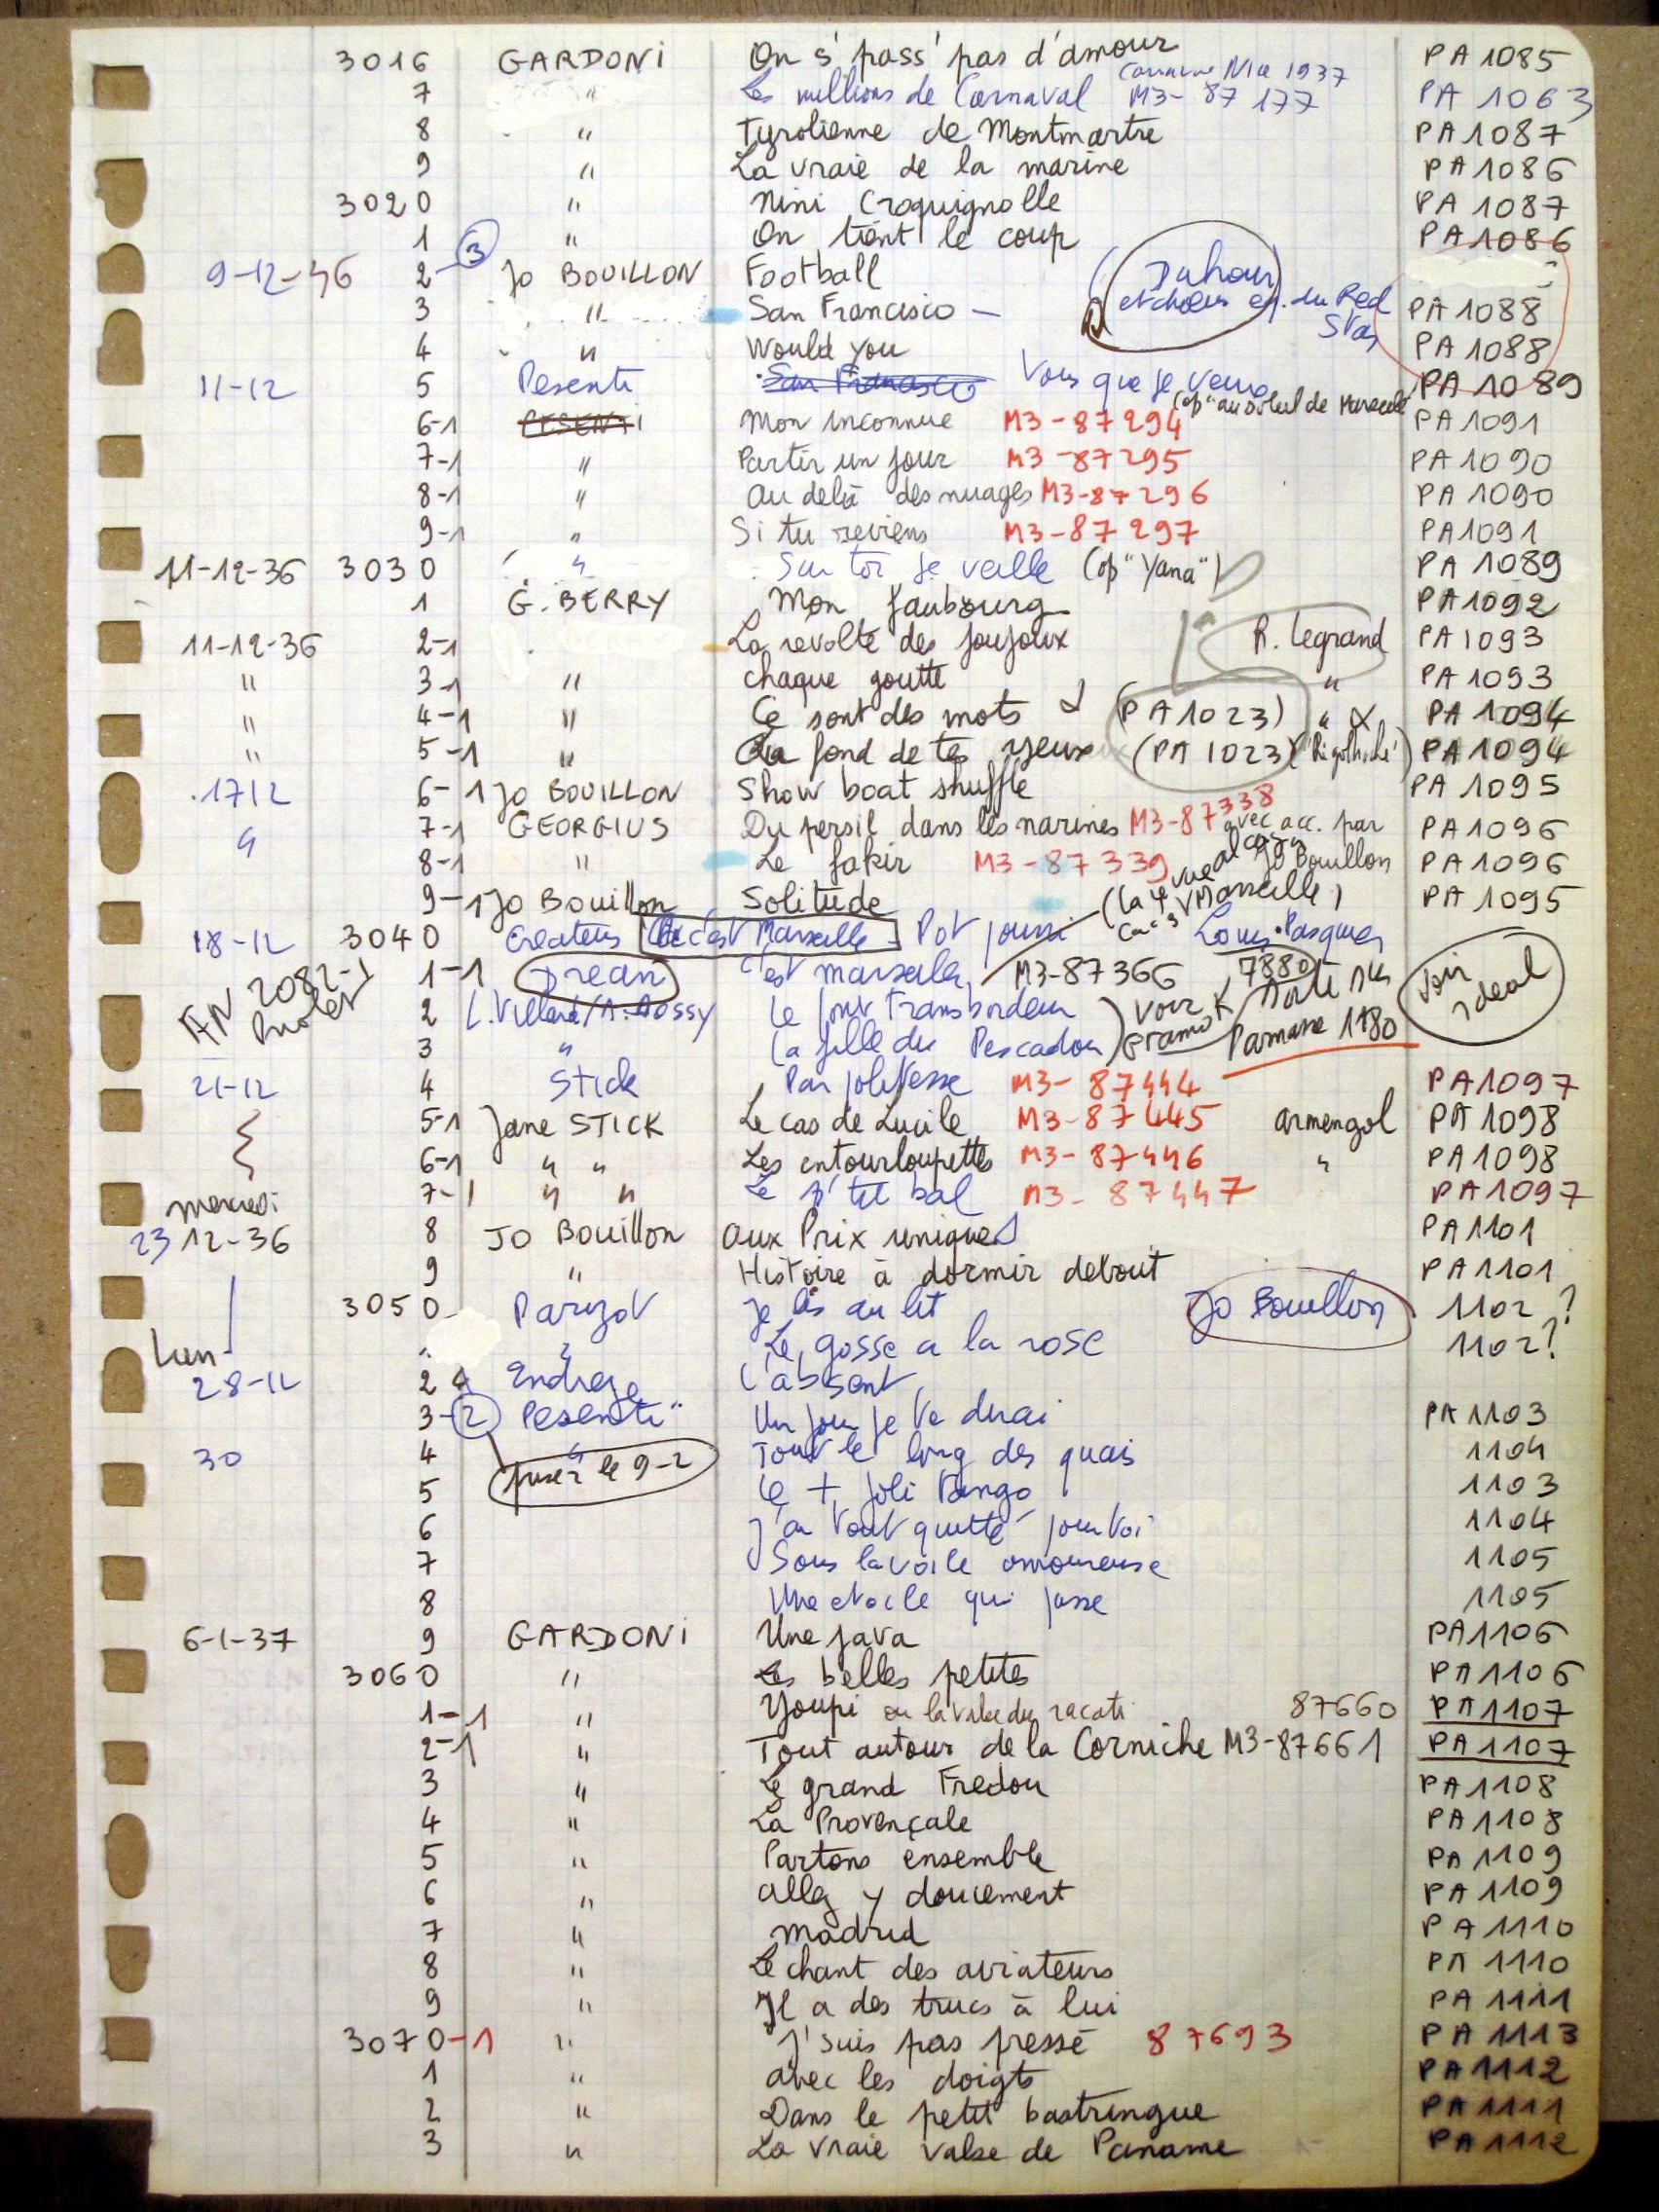 3016 GARDONI On s'pass' pas d'amour PA 1085
7 " Les millions de Carnaval Nice 1937 M3- 87 177 PA 1063
8 " Tyrolienne de Montmartre PA 1087
9 " La vraie de la marine PA 1086
3020 " Nini Croquignolle PA 1087
1 " On tient le coup PA 1086
9-12-46 2-3 Jo BOUILLON Football
3 " San Francisco - et chœurs eq. du Red Star PA 1088
4 " Would you PA 1088
11-12 5 Pesenti San Francisco Vous que je PA 1089
6-1 PESENTI Mon inconnue M3-87294 (op "au soleil de Marseille PA 1091
7-1 " Partir un jour M3-87295 PA 1090
8-1 " Au delà des nuages M3-87296 PA 1090
9-1 " Si tu reviens M3-87297 PA 1091
11-12-36 3030 " Sur toi je veille (op "Yana") PA 1089
1 G. BERRY Mon faubourg PA 1092
11-12-36 2-1 La révolte des joujoux R. Legrand PA 1093
" 3-1 " Chaque goutte " PA 1093
" 4-1 " Ce sont des mots (PA 1023) " PA 1094
" 5-1 " Au fond de tes yeux (PA 1023) PA 1094
17 12 6-1 Jo BOUILLON Show boat shuffle PA 1095
" 7-1 GEORGIUS Du persil dans les narines M3-87338 avec acc. par PA 1096
8-1 " Le fakir M3-87339 Jo Bouillon PA 1096
9-1 Jo Bouillon Solitude PA 1095
18-12 3040 Createurs de c'est Marseille - Pot pourri (la revue alcazar Marseille) Louis Pasquier
1-1 Drean C'est Marseille M3-87366 7880 Voir ideal
2 L. Villard/A. Aossy Le pont transbordeur voir
3 " La fille du Pescadou Parnasse 1180
21-12 4 Stick Par politesse M3- 87444 PA 1097
5-1 Jane STICK Le cas de Lucile M3-87445 armengol PA 1098
6-1 " " Les entourloupettes M3-87446 " PA 1098
7-1 " " Le p'tit bal M3- 87447 PA 1097
mercredi
23 12-36 8 JO Bouillon Aux Prix uniques PA 1101
9 " Histoire à dormir debout PA 1101
3050 Parizot Je lis au lit Jo Bouillon 1102?
Lun Le gosse a la rose 1102?
28-12 2 L'absent
3-2 Pesenti Un jour je te dirai PA 1103
30 4 " Tout le long des quais 1104
5 Le + joli tango 1103
6 J'ai tout quitté pour toi 1104
7 Sous la voile amoureuse 1105
8 Une etoile qui passe 1105
6-1-37 9 GARDONI Une java PA 1106
3060 " Les belles petites PA 1106
1-1 " Youpi ou 87660 PA 1107
2-1 " Tout autour de la Corniche M3-87661 PA 1107
3 " Le grand Fredou PA 1108
4 " La Provençale PA 1108
5 " Partons ensemble PA 1109
6 " Allez y doucement PA 1109
7 " Madrid PA 1110
8 " Le chant des aviateurs PA 1110
9 " Il a des trucs à lui PA 1111
3070-1 " J'suis pas pressé 87693 PA 1113
1 " Avec les doigts PA 1112
2 " Dans le petit bastringue PA 1111
3 " La vraie valse de Paname PA 1112